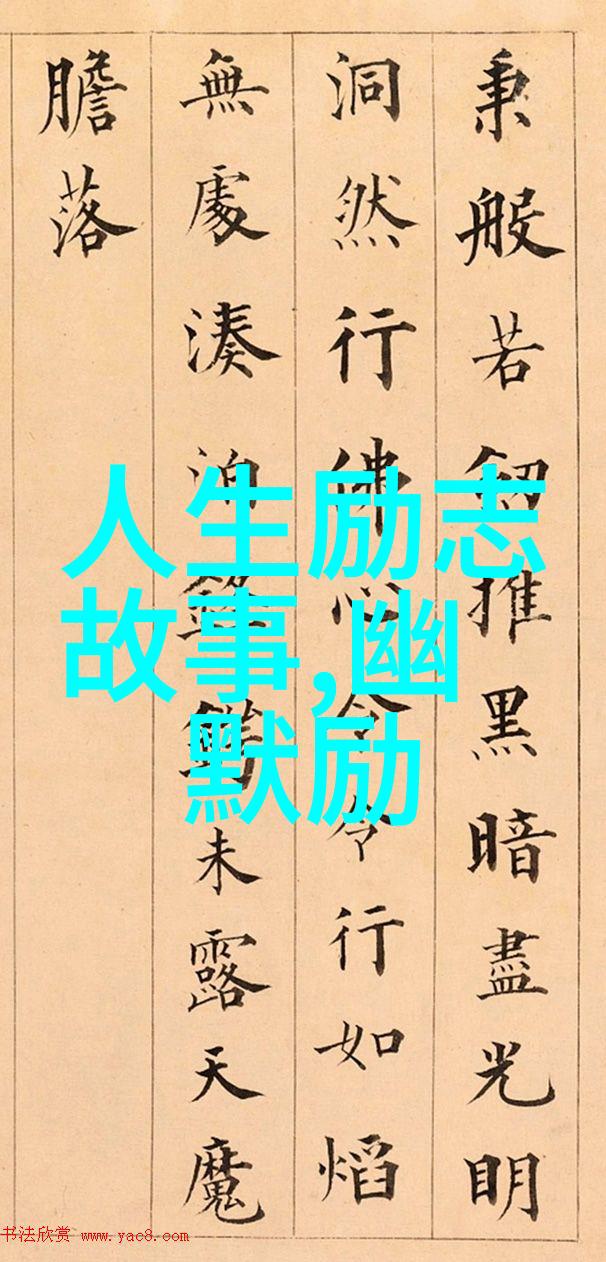 秉般若推黑暗盡光明
洞然行佛心令令行如焰
無處湊泊鋒未露天魔
膽落
人生励志
故事,幽
默励
书法欣赏 www.yac8.com